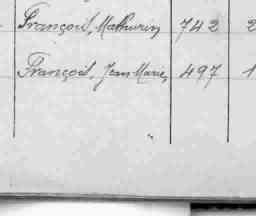 François, Mathurin, 742 2
François, Jean Marie, 497 1